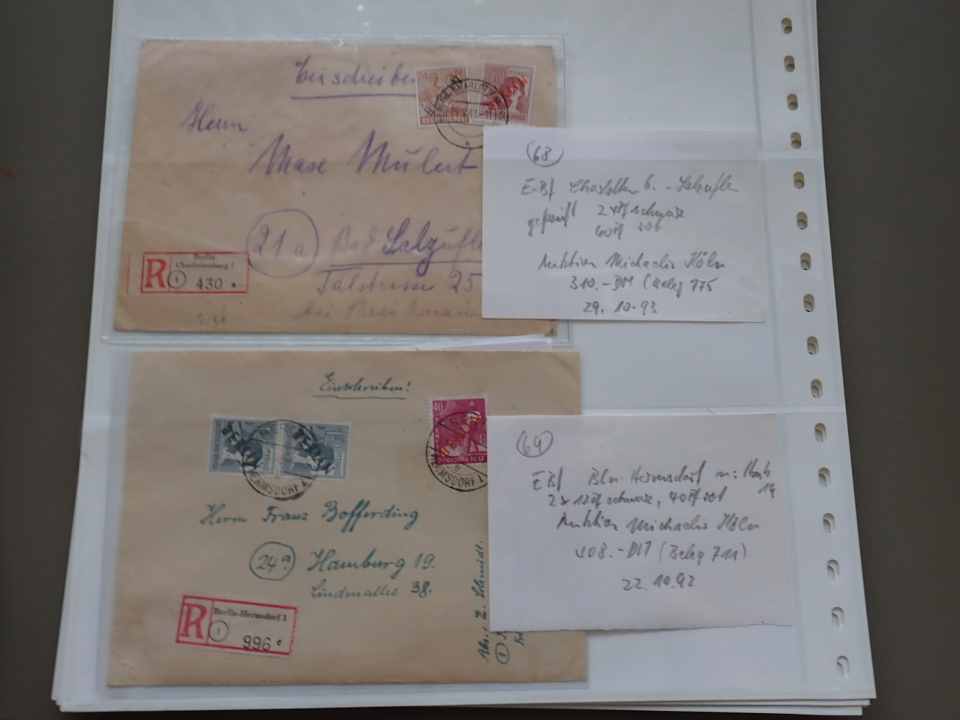 Einschreiben
Herrn
Max Mülert
21a Bad Salzuflen
Talstrasse 25
bei
R Berlin
Charlottenburg
1 430
(68)
E-Bf Charlottenb. - Salzuflen
2 schwarz
60Pf rot
Auktion Michaelis Köln
310.-DM (Beleg 775
29.10.93
Einschreiben!
BERLIN BERLIN
40
Herrn Franz Bofferding
24a Hamburg 19.
Lindenallee 38.
R Berlin-Hermsdorf 1
1 996 c
Abs.: Z. Schmidt.
(64)
E-Bf Bln. Hermsdorf n. Hamb
2 x 12Pf schwarz, 40Pf rot 19
Auktion Michaelis Köln
408.-DM (Beleg 711)
22.10.92